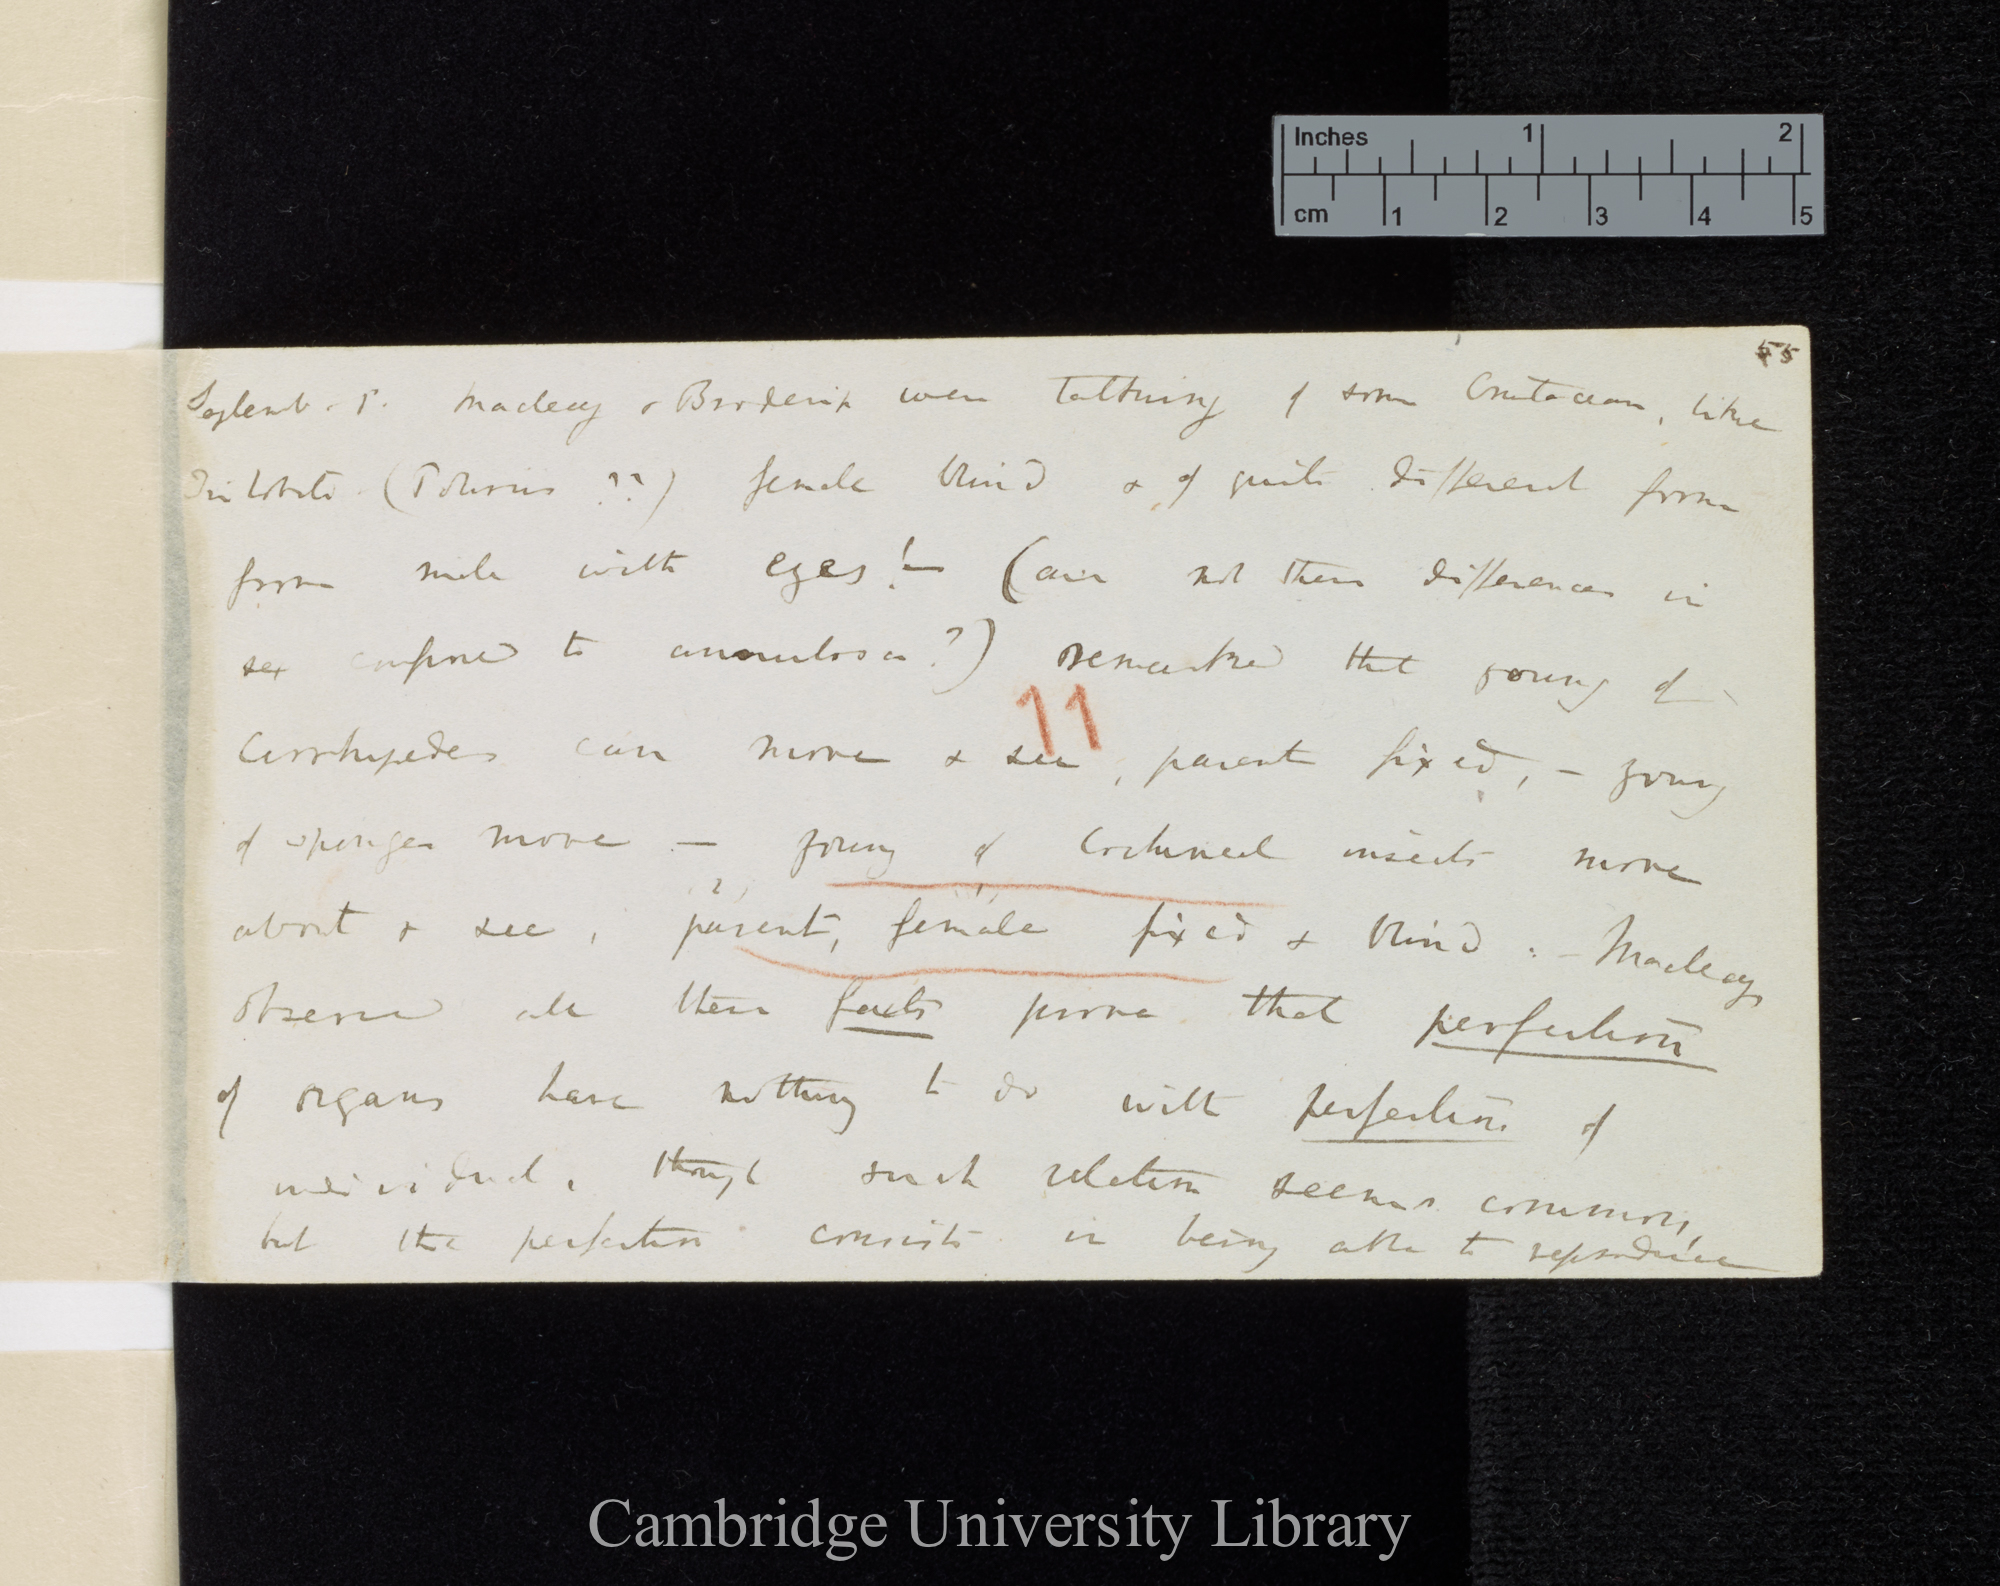 Inches 1 2
cm 1 2 3 4 5
55
Septemb. 7. Macleay & Broderip were talking of some Crustacean, like
Trilobite (Polirus ??) female blind & of quite different form
from male with eyes! — (are not these differences in
sex confined to annulosa?) remarked that young of
Cirrhipedes can move & see, parent fixed, — young
11
of sponges move — young of Cochineal insects move
about & see, parent, female fixed & blind: — Macleay
?
observed all these facts prove that perfection
of organs have nothing to do with perfection of
individual, though such relation seems common,
but the perfection consists in being able to reproduce
Cambridge University Library